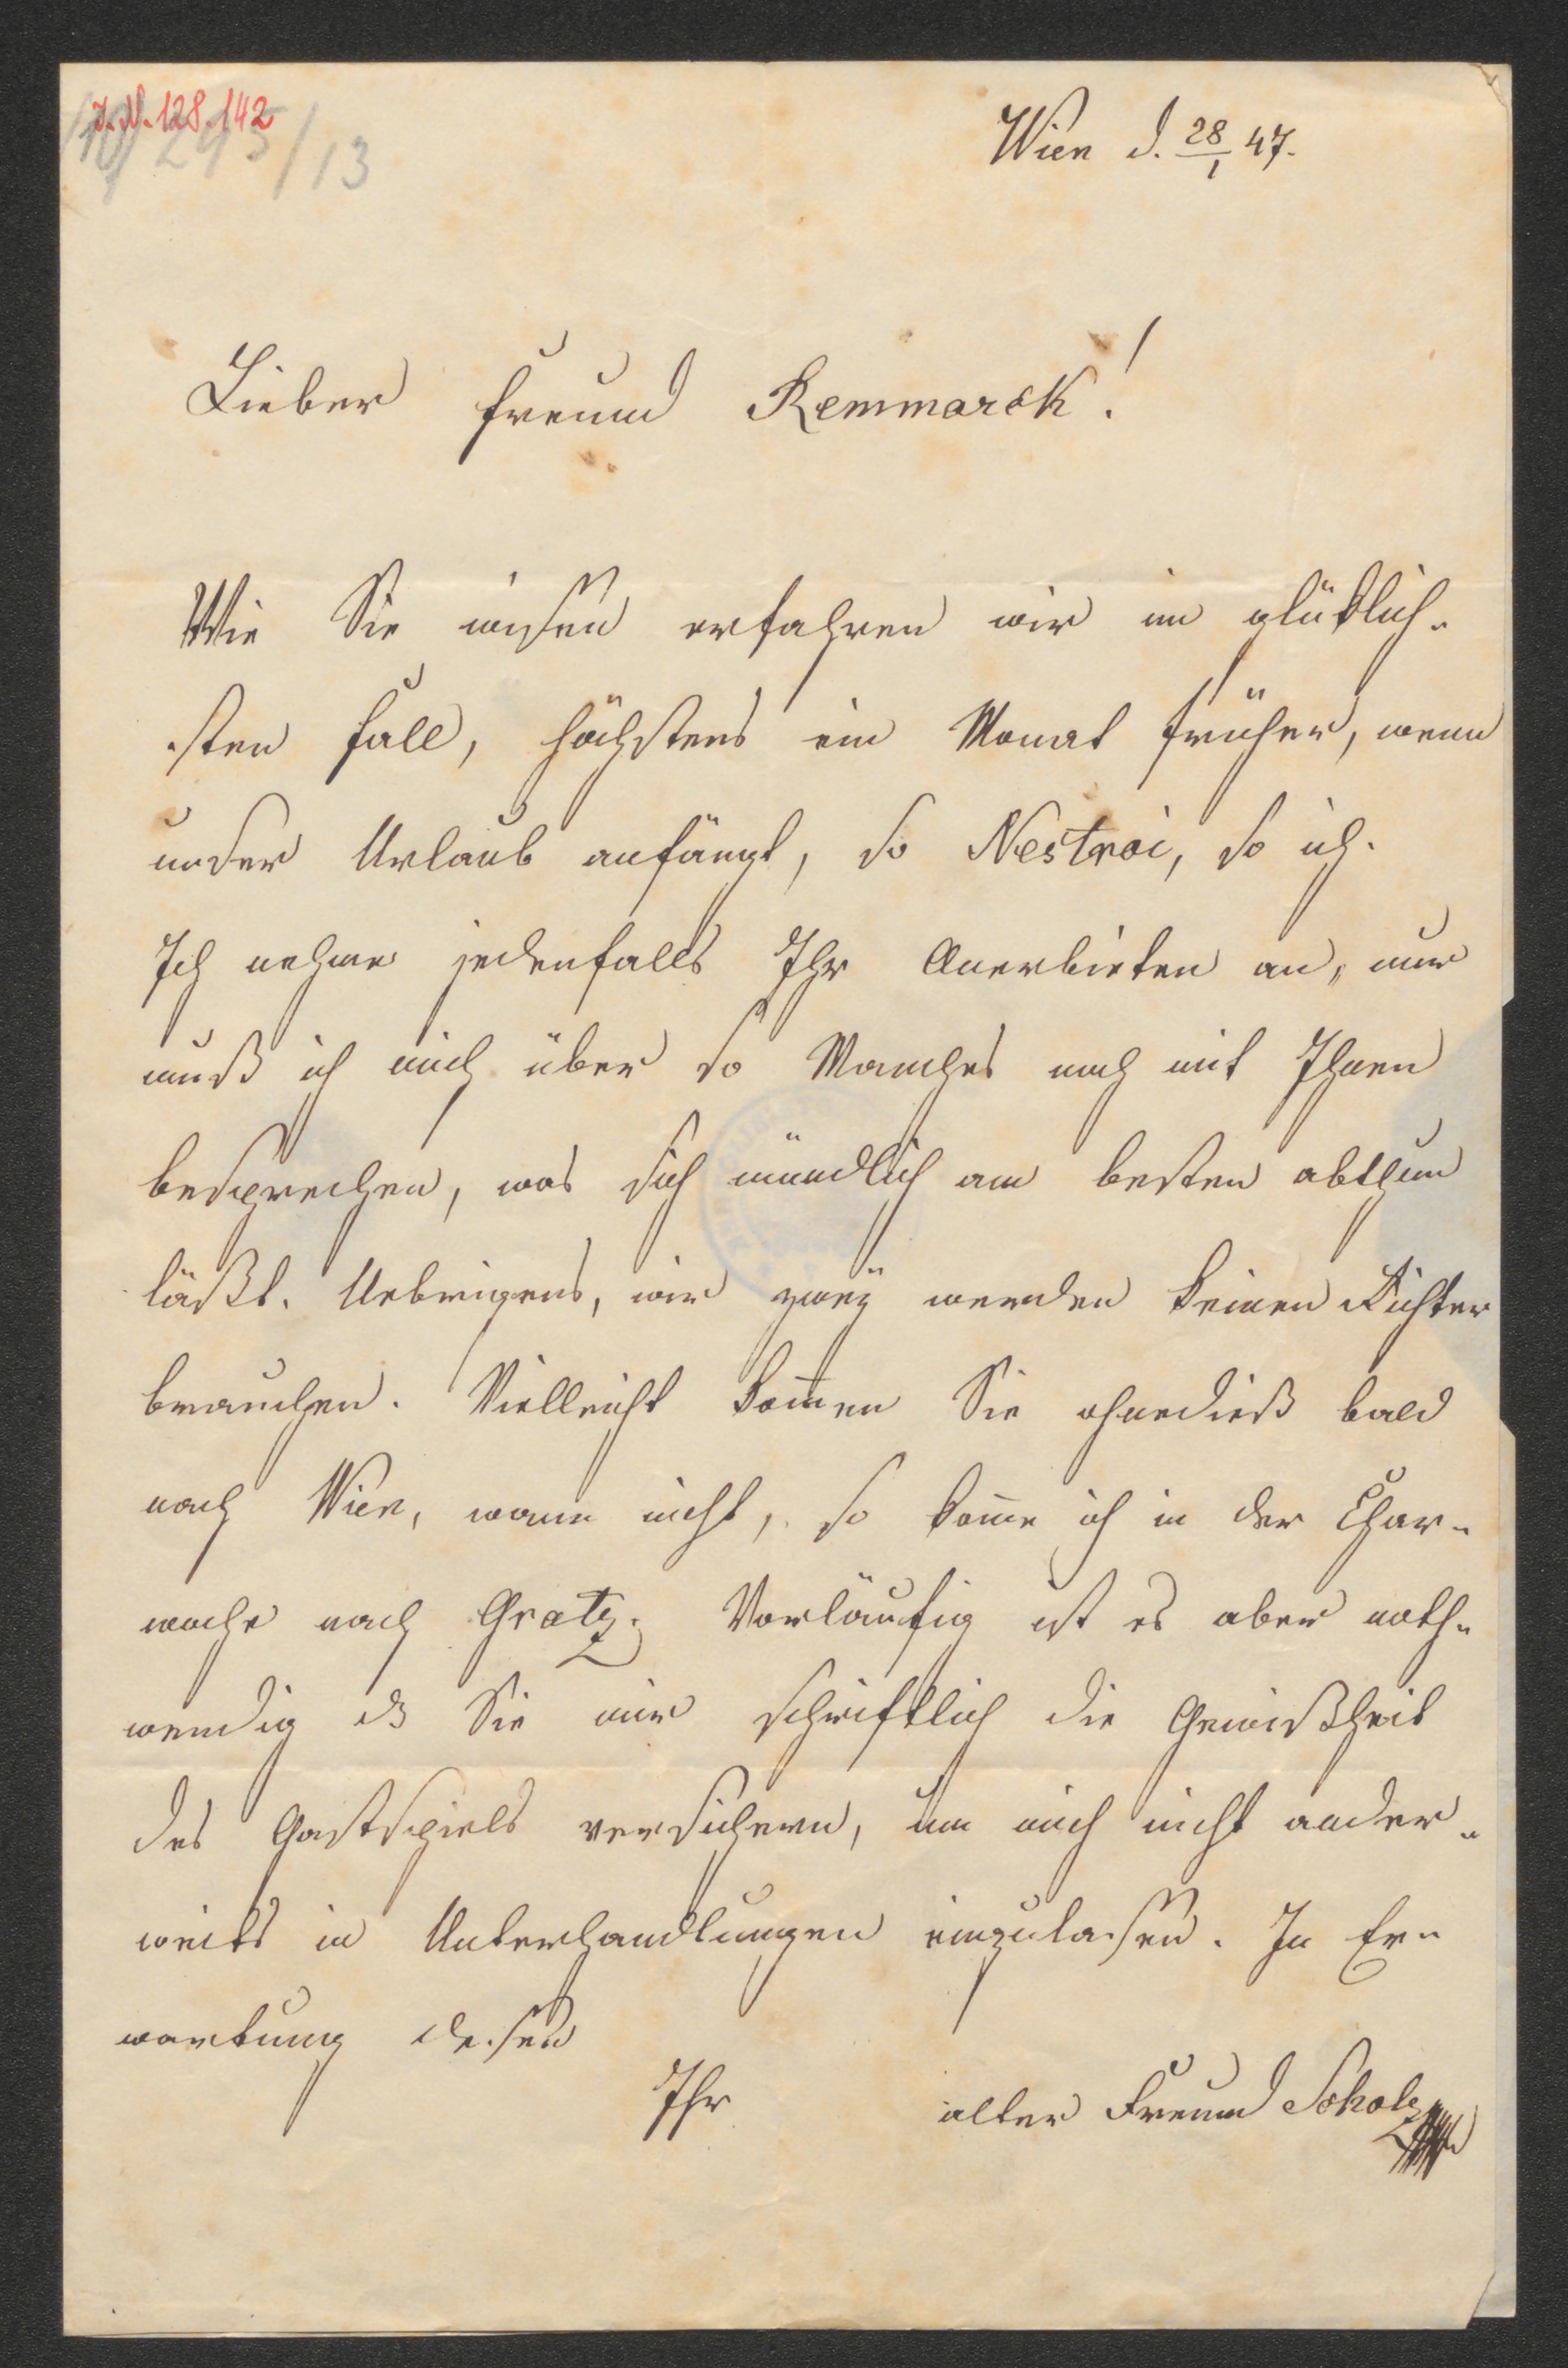 J.N. 128.142
245/13
Wien d. 28/1 47.
Lieber Freund Remmarck!
Wie Sie wißen erfahren wir im glüklich-
sten Fall, höchstens ein Monat früher, wenn
unser Urlaub anfängt, so Nestroi, so ich.
Ich nehme jedenfalls Ihr Anerbieten an, nur
muß ich mich über so Manches noch mit Ihnen
besprechen, was sich mündlich am besten abthun
läßt. Uebrigens, wir zweÿ werden keinen Richter
brauchen. Vielleicht kom̄en Sie ohnedieß bald
nach Wien, wann nicht, so kom̄e ich in der Char-
woche nach Gratz. Vorläufig ist es aber noth-
wendig dß Sie mir schriftlich die Gewißheit
des Gastspiels versichern, um mich nicht ander-
weits in Unterhandlungen einzulaßen. In Er-
wartung deßen
Ihr alter Freund Scholz